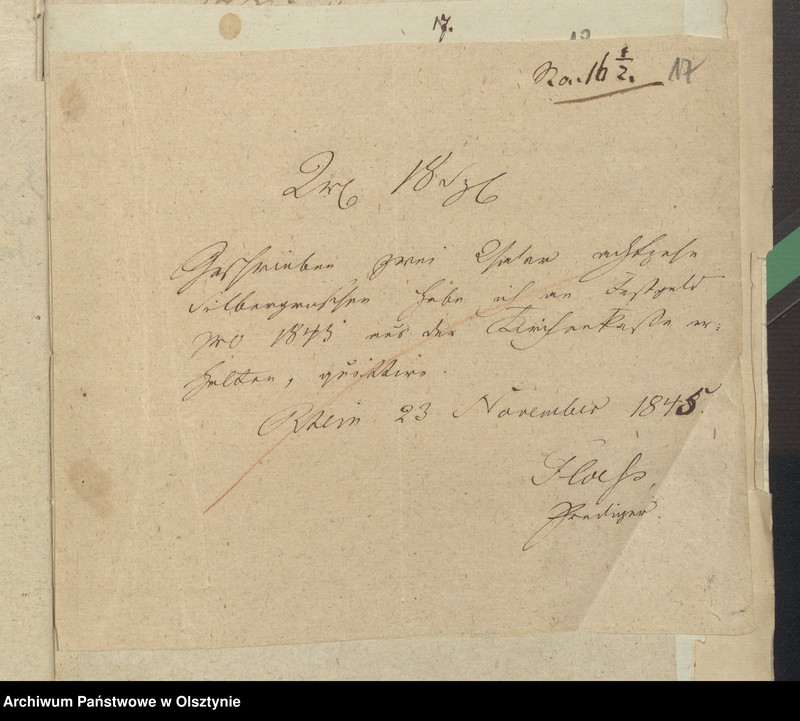 17.
No. 16 1/2. 17
2 rℓ 18 Sgℓ
Geschrieben zwei Thaler achtzehn
Silbergroschen habe ich an Festgeld
pro 1845 aus der Kirchenkasse er=
halten, quittire.
Rhein 23 November 1845.
Prediger.
Archiwum Państwowe w Olsztynie